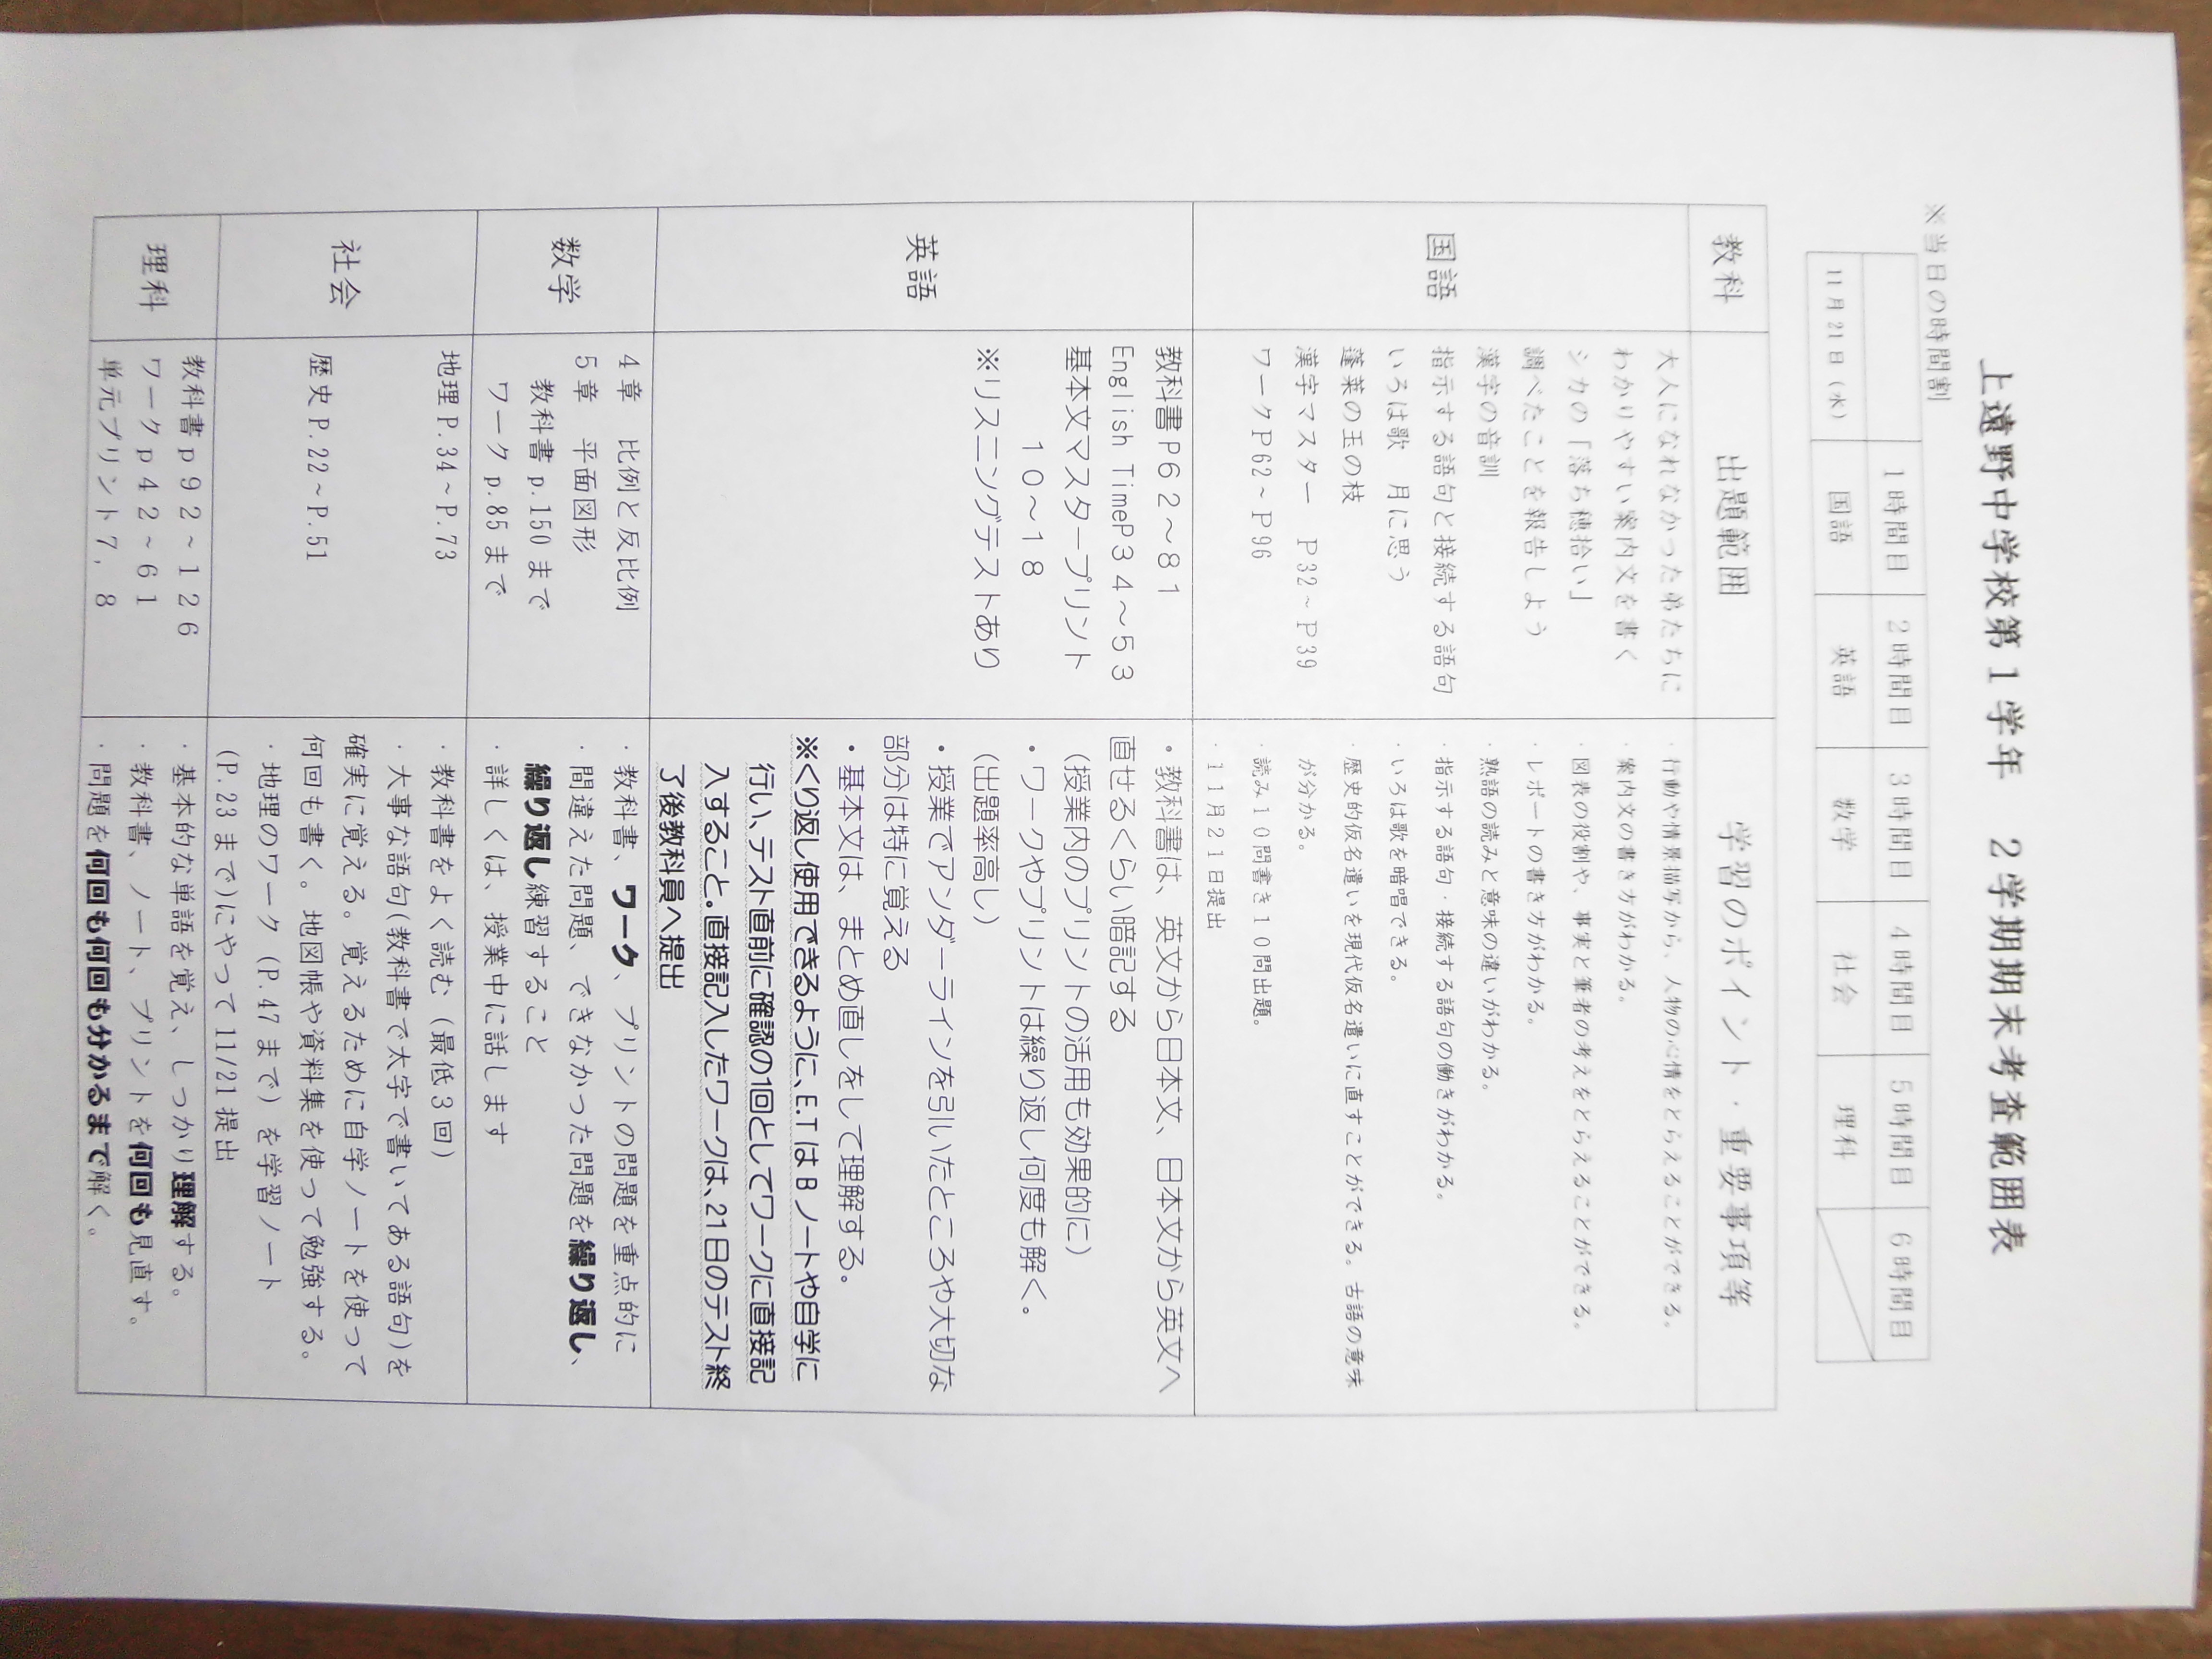 上遠野中学校第１学年　２学期期末考査範囲表
※当日の時間割
1時間目 2時間目 3時間目 4時間目 5時間目 6時間目
11月21日（水） 国語 英語 数学 社会 理科
教科 出題範囲 学習のポイント・重要事項等
国語
大人になれなかった弟たちに
わかりやすい案内文を書く
シカの「落ち穂拾い」
調べたことを報告しよう
漢字の音訓
指示する語句と接続する語句
いろは歌　月に思う
蓬莱の玉の枝
漢字マスター　P32～P39
ワークP62～P96
・行動や情景描写から、人物の心情をとらえることができる。
・案内文の書き方がわかる。
・図表の役割や、事実と筆者の考えをとらえることができる。
・レポートの書き方がわかる。
・熟語の読みと意味の違いがわかる。
・指示する語句・接続する語句の働きがわかる。
・いろは歌を暗唱できる。
・歴史的仮名遣いを現代仮名遣いに直すことができる。古語の意味
が分かる。
・読み１０問書き１０問出題。
・１１月２１日提出
英語
教科書Ｐ６２～８１
English TimeP３４～５３
基本文マスタープリント
１０～１８
※リスニングテストあり
・教科書は、英文から日本文、日本文から英文へ
直せるくらい暗記する
（授業内のプリントの活用も効果的に）
・ワークやプリントは繰り返し何度も解く。
（出題率高し）
・授業でアンダーラインを引いたところや大切な
部分は特に覚える
・基本文は、まとめ直しをして理解する。
※くり返し使用できるように、E.TはBノートや自学に
行い、テスト直前に確認の1回としてワークに直接記
入すること。直接記入したワークは、21日のテスト終
了後教科員へ提出
数学
４章　比例と反比例
５章　平面図形
教科書 p.150まで
ワーク p.85まで
・教科書、ワーク、プリントの問題を重点的に
・間違えた問題、できなかった問題を繰り返し、
繰り返し練習すること
・詳しくは、授業中に話します
社会
地理 P.34～P.73
歴史 P.22～P.51
・教科書をよく読む（最低３回）
・大事な語句(教科書で太字で書いてある語句)を
確実に覚える。覚えるために自学ノートを使って
何回も書く。地図帳や資料集を使って勉強する。
・地理のワーク（P.47まで）を学習ノート
(P.23まで)にやって11/21提出
理科
教科書ｐ９２～１２６
ワークｐ４２～６１
単元プリント７，８
・基本的な単語を覚え、しっかり理解する。
・教科書、ノート、プリントを何回も見直す。
・問題を何回も何回も分かるまで解く。